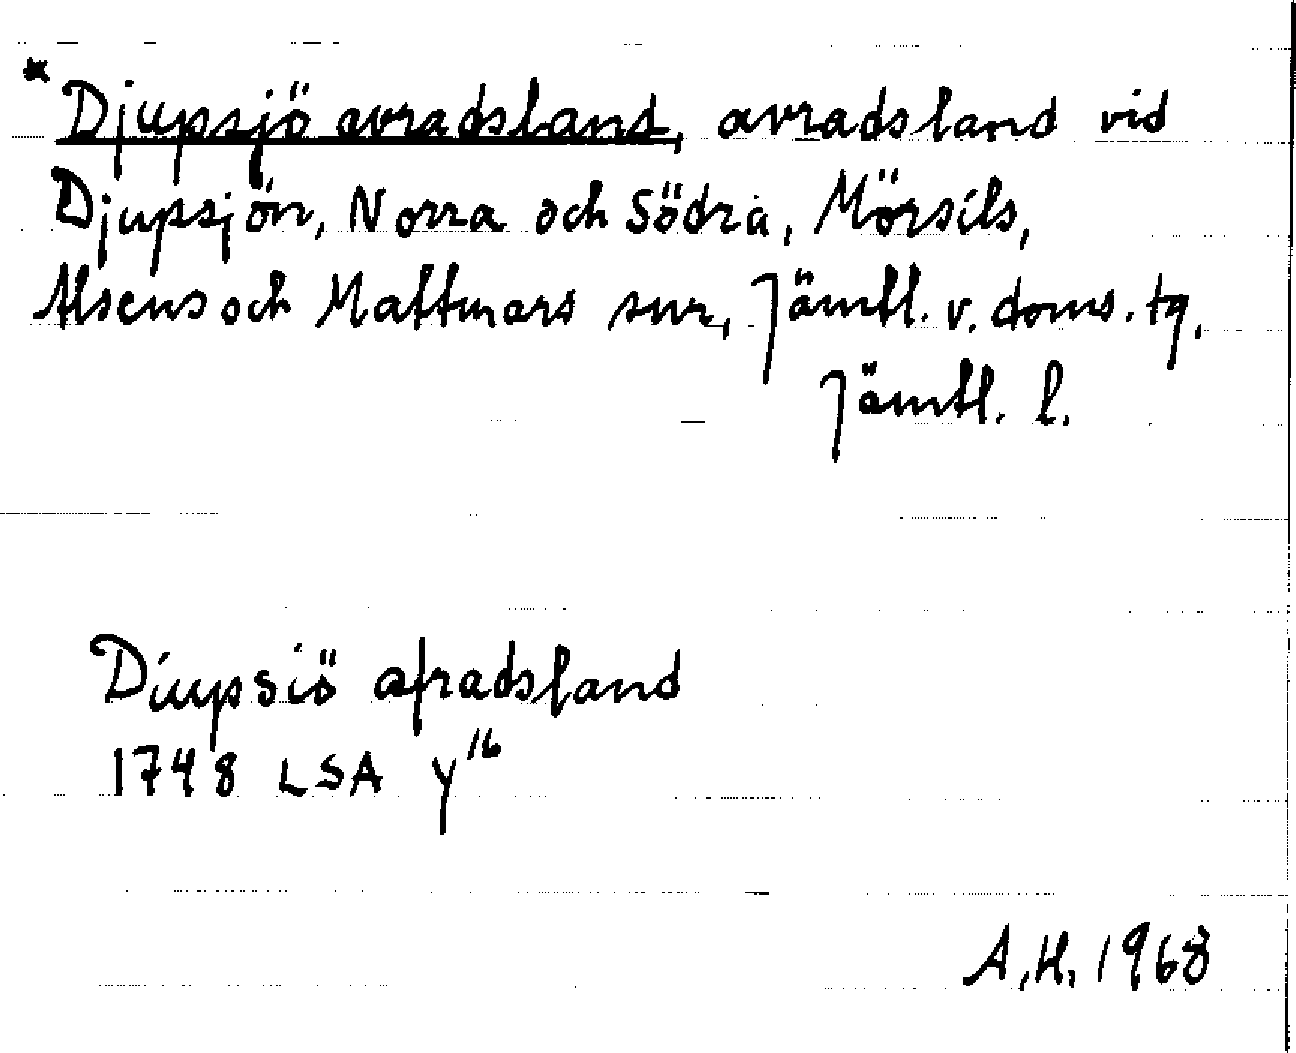 * Djupsjö avradsland, avradsland vid
Djupsjön, Norra och Södra, Mörsils,
Alsens och Mattmars snr, Jämtl. v. doms. tg,
Jämtl. l.
Diupsiö afradsland
1748 LSA Y¹⁶
A.H. 1968